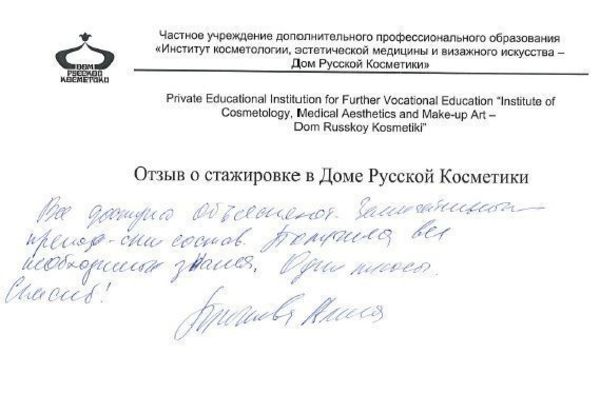 Частное учреждение дополнительного профессионального образования
«Институт косметологии, эстетической медицины и визажного искусства –
Дом Русской Косметики»
ДОМ
РУССКОЙ
КОСМЕТИКИ
Private Educational Institution for Further Vocational Education "Institute of
Cosmetology, Medical Aesthetics and Make-up Art –
Dom Russkoy Kosmetiki"
Отзыв о стажировке в Доме Русской Косметики
Все доступно объясняют. Замечательный
препод-ский состав. Получила все
необходимые знания. Одни плюсы.
Спасибо!